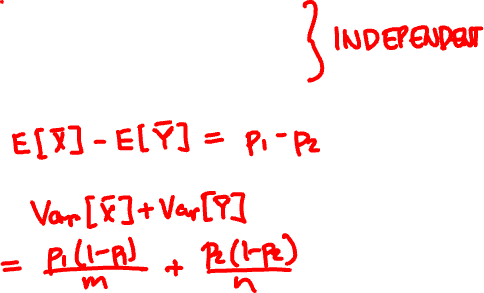 } INDEPENDENT
E[X̄] - E[Ȳ] = p₁ - p₂
Var[X̄] + Var[Ȳ]
= p₁(1-p₁)/m + p₂(1-p₂)/n